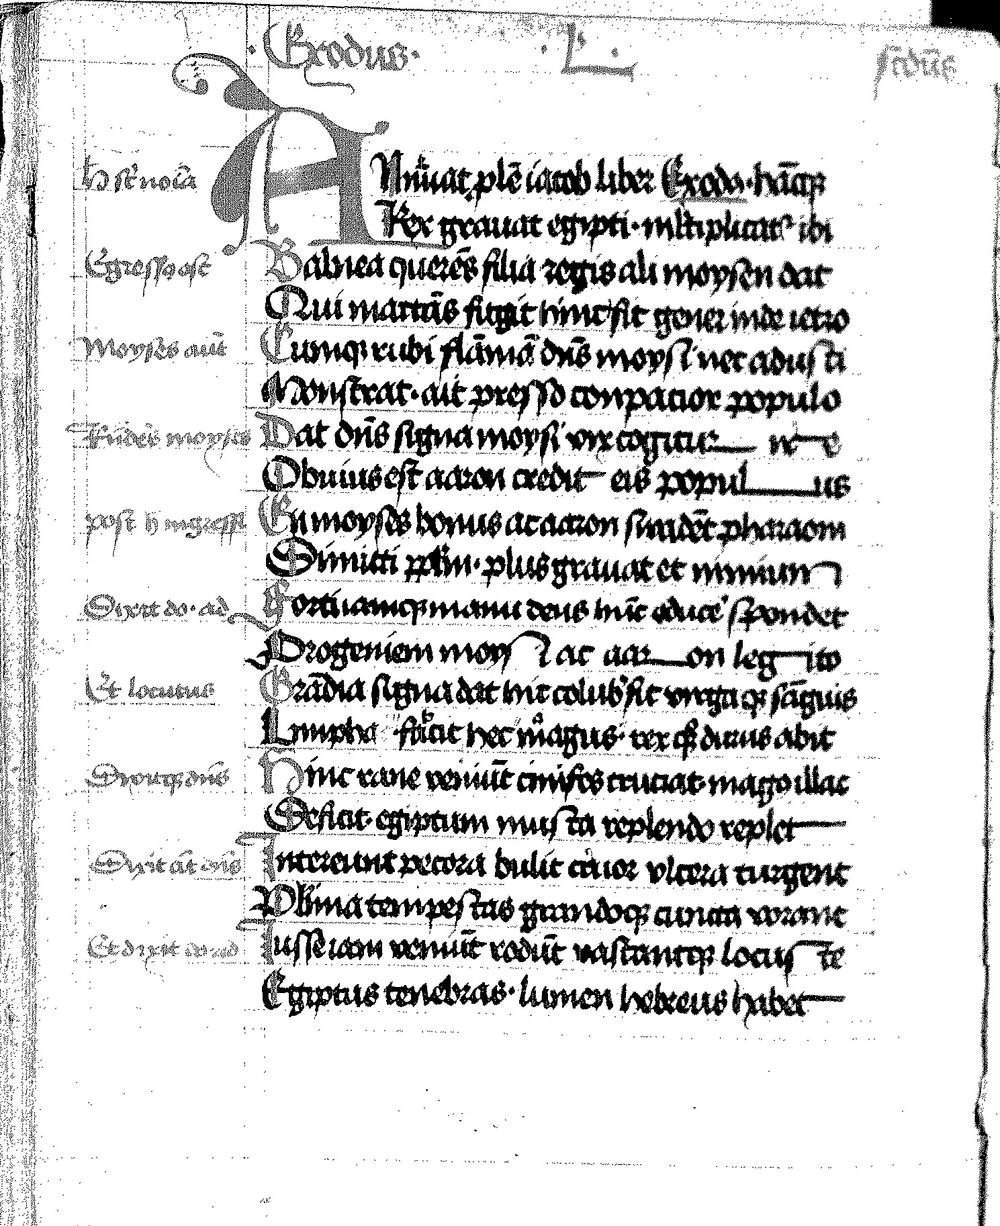 Exodus L scdus
h sut noia Annuat plem iacob liber Exodo hancque
Rex grauat egipti multiplicatur ibi
Egressus est Balnea querens filia regis ali moysen dat
Qui mactans fugit hinc fit gener inde ietro
Moyses aut Cumque rubi flammam dns moysi nec adusti
Monstrat ait presso conpacior populo
Rndes moyses Dat dns signa moysi vix cogitur ire
Obuius est aaron credit eis populus
post h ingressi En moyses bonus ac aaron suadet pharaoni
Dimitti pplm plus grauat et nimium
Dixit do ad Forti iamque manu deus hunc educere spondet
Progeniem moysi ac aaron legito
Et locutus Grandia signa dat hic colubr fit virga que sanguis
Limpha facit hec magus rex durus abit
Dixitque dns Hinc rane veniunt cinifes cruciat mago illac
Deficit egiptum musca replendo replet
Dixit at dns Intereunt pecora bulit cruor vlcera turgent
Plima tempestas grandoque cuncta vorant
Et dixit do ad Iusse iam veniunt rodunt vastantque locuste
Egiptus tenebras lumen hebreus habet